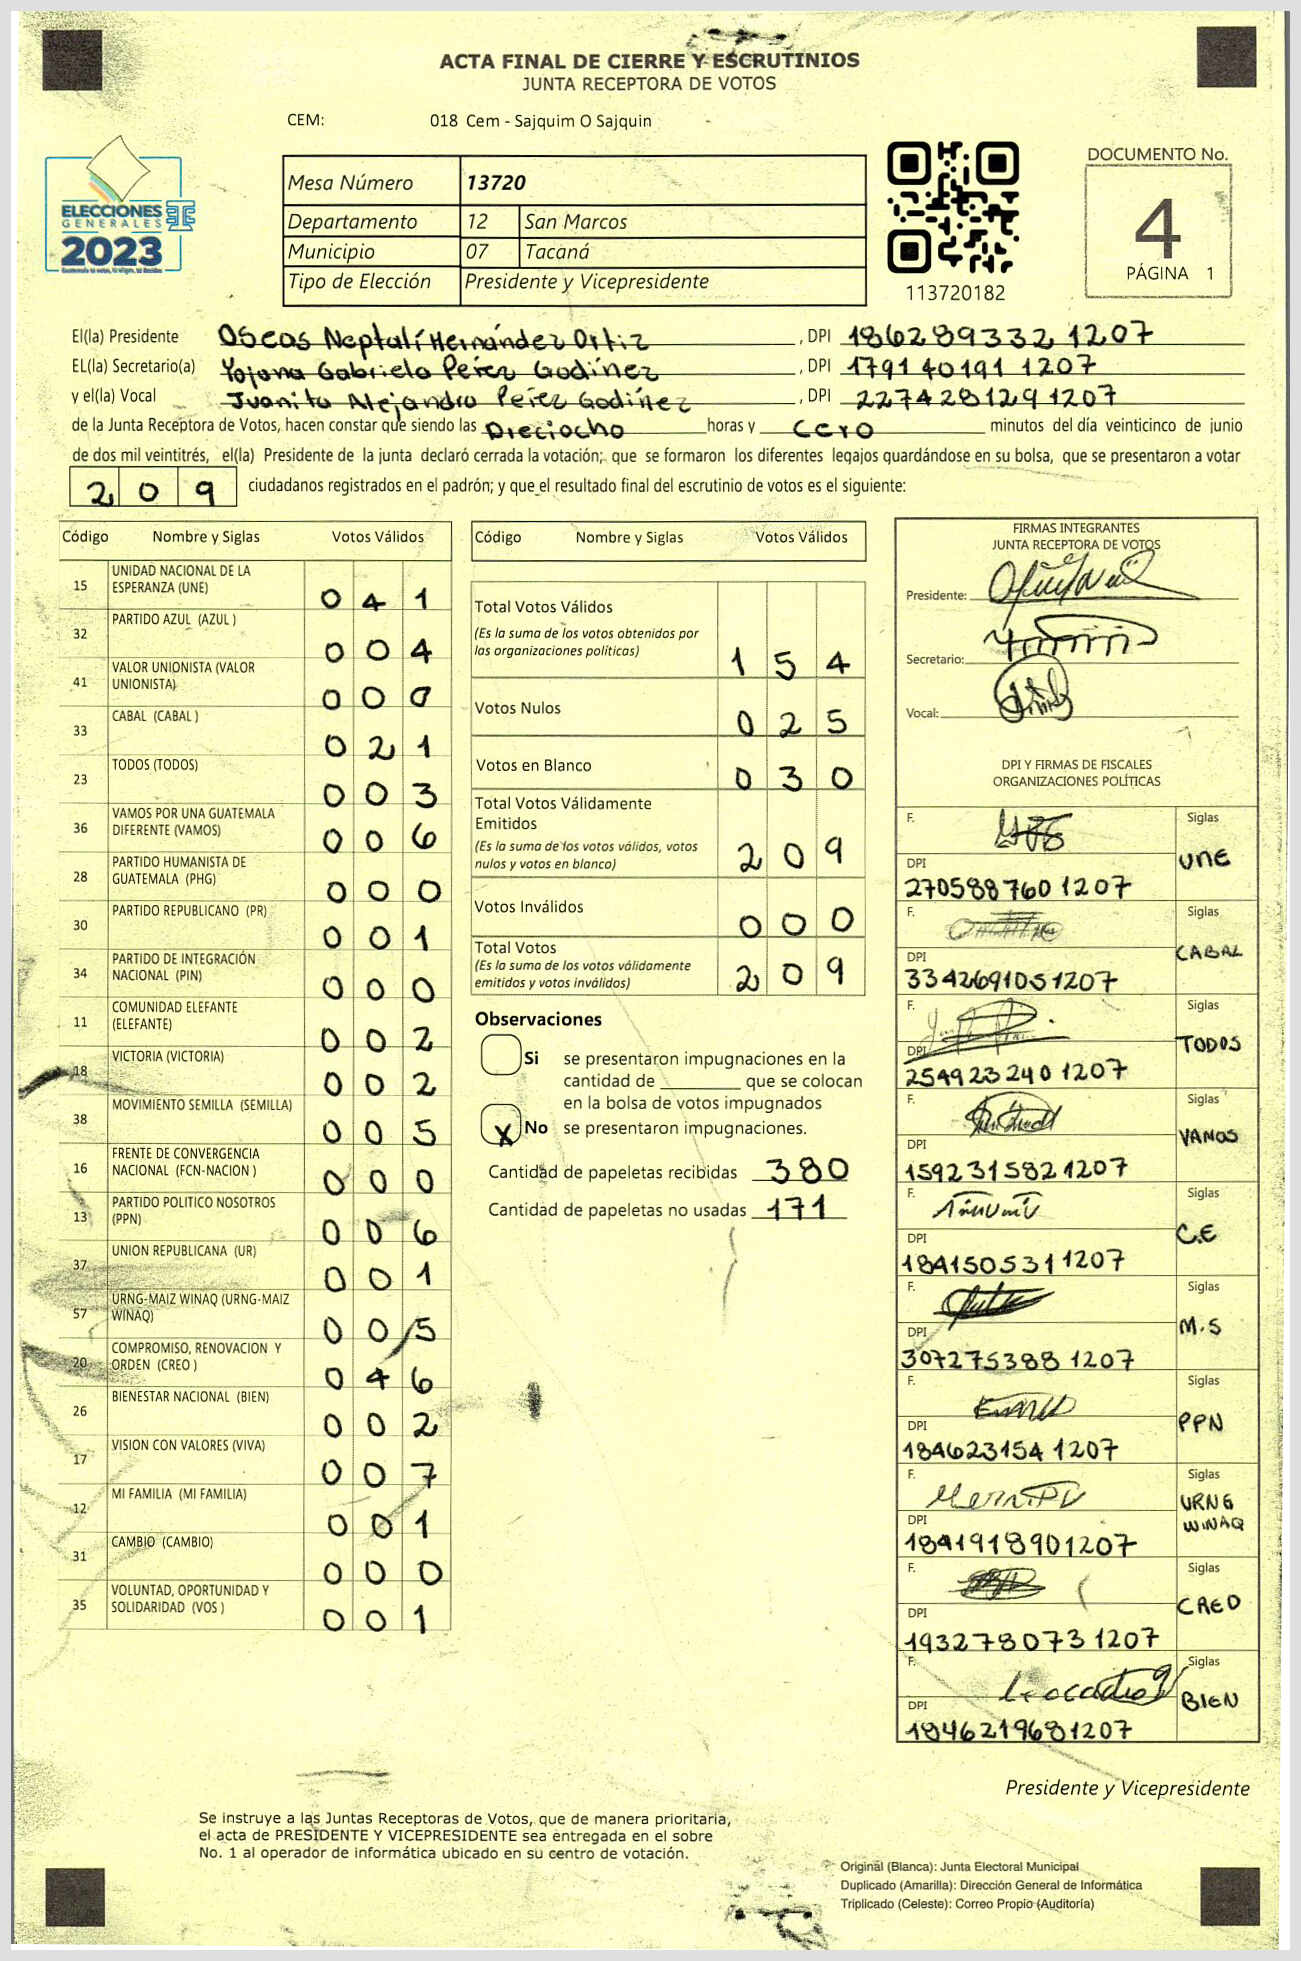 ACTA FINAL DE CIERRE Y ESCRUTINIOS
JUNTA RECEPTORA DE VOTOS
CEM: 018 Cem - Sajquim O Sajquin
ELECCIONES
GENERALES
2023
Mesa Número 13720
Departamento 12 San Marcos
Municipio 07 Tacaná
Tipo de Elección Presidente y Vicepresidente
113720182
DOCUMENTO No.
4
PÁGINA 1
El(la) Presidente Oscar Neptalí Hernández Ortiz, DPI 186289332 1207
EL(la) Secretario(a) Yojana Gabriela Pérez Godínez, DPI 179140191 1207
y el(la) Vocal Juanito Alejandro Pérez Godínez, DPI 227428129 1207
de la Junta Receptora de Votos, hacen constar que siendo las Dieciocho horas y cero minutos del día veinticinco de junio
de dos mil veintitrés, el(la) Presidente de la junta declaró cerrada la votación; que se formaron los diferentes legajos guardándose en su bolsa, que se presentaron a votar
209 ciudadanos registrados en el padrón; y que el resultado final del escrutinio de votos es el siguiente:
Código Nombre y Siglas Votos Válidos
15 UNIDAD NACIONAL DE LA ESPERANZA (UNE) 041
32 PARTIDO AZUL (AZUL ) 004
41 VALOR UNIONISTA (VALOR UNIONISTA) 000
33 CABAL (CABAL ) 021
23 TODOS (TODOS) 003
36 VAMOS POR UNA GUATEMALA DIFERENTE (VAMOS) 006
28 PARTIDO HUMANISTA DE GUATEMALA (PHG) 000
30 PARTIDO REPUBLICANO (PR) 001
34 PARTIDO DE INTEGRACIÓN NACIONAL (PIN) 000
11 COMUNIDAD ELEFANTE (ELEFANTE) 002
18 VICTORIA (VICTORIA) 002
38 MOVIMIENTO SEMILLA (SEMILLA) 005
16 FRENTE DE CONVERGENCIA NACIONAL (FCN-NACION ) 000
13 PARTIDO POLITICO NOSOTROS (PPN) 006
37 UNION REPUBLICANA (UR) 001
57 URNG-MAIZ WINAQ (URNG-MAIZ WINAQ) 005
20 COMPROMISO, RENOVACION Y ORDEN (CREO ) 046
26 BIENESTAR NACIONAL (BIEN) 002
17 VISION CON VALORES (VIVA) 007
12 MI FAMILIA (MI FAMILIA) 001
31 CAMBIO (CAMBIO) 000
35 VOLUNTAD, OPORTUNIDAD Y SOLIDARIDAD (VOS ) 001
Código Nombre y Siglas Votos Válidos
Total Votos Válidos
(Es la suma de los votos obtenidos por
las organizaciones políticas) 154
Votos Nulos 025
Votos en Blanco 030
Total Votos Válidamente
Emitidos
(Es la suma de los votos válidos, votos
nulos y votos en blanco) 209
Votos Inválidos 000
Total Votos
(Es la suma de los votos válidamente
emitidos y votos inválidos) 209
Observaciones
Si se presentaron impugnaciones en la
cantidad de ________ que se colocan
en la bolsa de votos impugnados
X No se presentaron impugnaciones.
Cantidad de papeletas recibidas 380
Cantidad de papeletas no usadas 171
FIRMAS INTEGRANTES
JUNTA RECEPTORA DE VOTOS
Presidente:
Secretario:
Vocal:
DPI Y FIRMAS DE FISCALES
ORGANIZACIONES POLÍTICAS
F. Siglas
DPI UNE
270588760 1207
F. Siglas
DPI CABAL
334269105 1207
F. Siglas
DPI TODOS
254923240 1207
F. Siglas
DPI VAMOS
159231582 1207
F. Siglas
DPI C.E
184150531 1207
F. Siglas
DPI M.S
307275388 1207
F. Siglas
DPI PPN
184623154 1207
F. Siglas
DPI URNG WINAQ
184191890 1207
F. Siglas
DPI CREO
193278073 1207
F. Siglas
DPI BIEN
184621968 1207
Presidente y Vicepresidente
Se instruye a las Juntas Receptoras de Votos, que de manera prioritaria,
el acta de PRESIDENTE Y VICEPRESIDENTE sea entregada en el sobre
No. 1 al operador de informática ubicado en su centro de votación.
Original (Blanca): Junta Electoral Municipal
Duplicado (Amarilla): Dirección General de Informática
Triplicado (Celeste): Correo Propio (Auditoría)